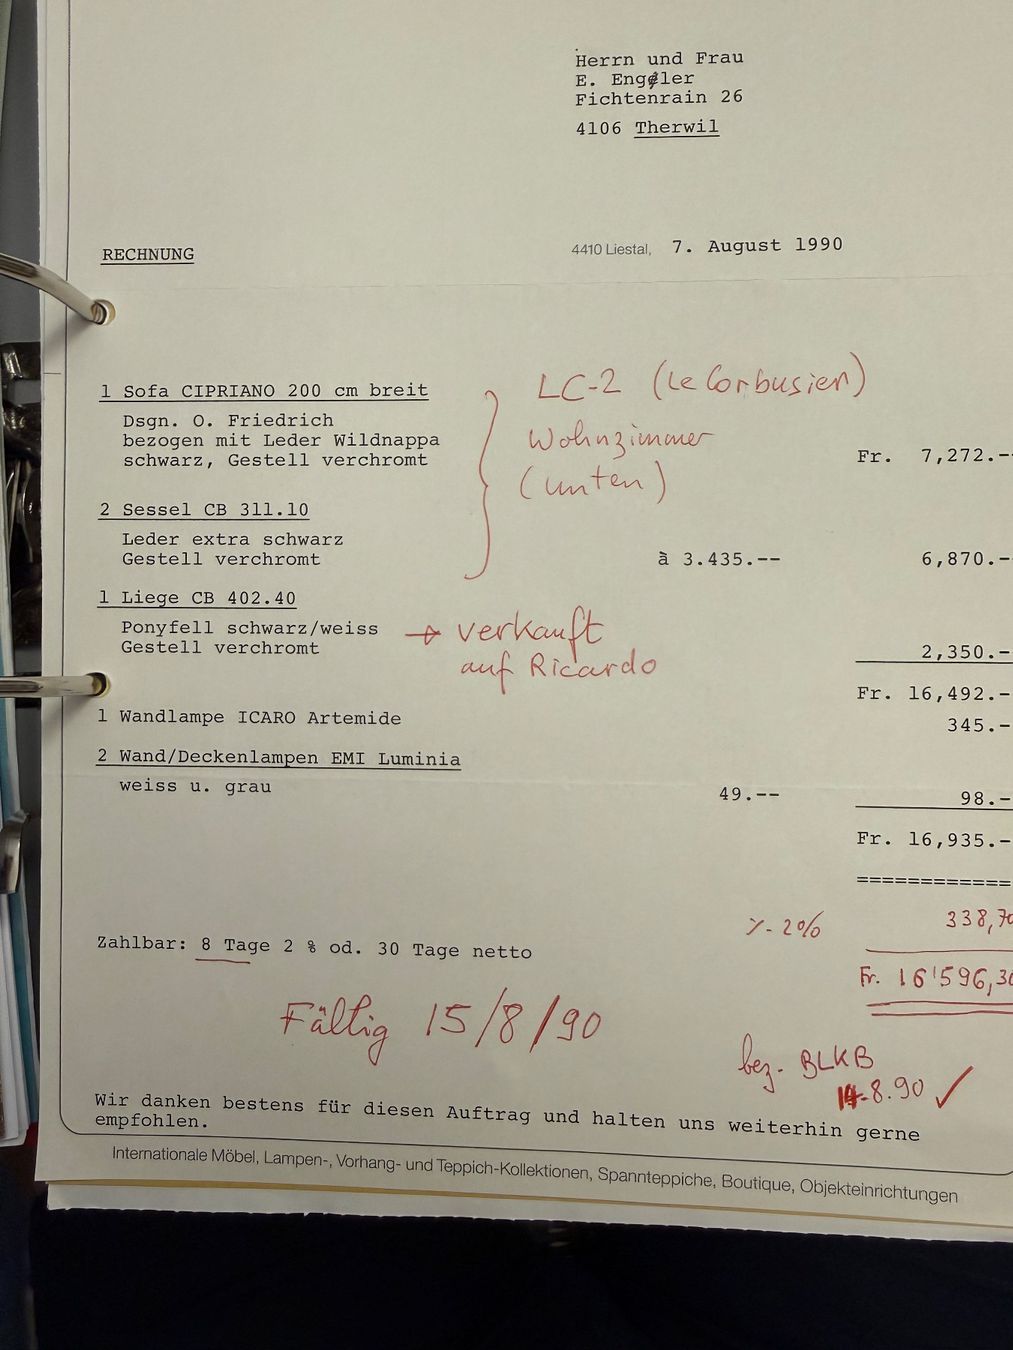 Herrn und Frau
E. Engeler
Fichtenrain 26
4106 Therwil
RECHNUNG
4410 Liestal, 7. August 1990
1 Sofa CIPRIANO 200 cm breit
LC-2 (Le Corbusier)
Dsgn. O. Friedrich
bezogen mit Leder Wildnappa
Wohnzimmer
schwarz, Gestell verchromt
Fr. 7,272.--
(unten)
2 Sessel CB 311.10
Leder extra schwarz
Gestell verchromt à 3.435.-- 6,870.--
1 Liege CB 402.40
Ponyfell schwarz/weiss → verkauft
Gestell verchromt 2,350.-
auf Ricardo
Fr. 16,492.-
1 Wandlampe ICARO Artemide 345.-
2 Wand/Deckenlampen EMI Luminia
weiss u. grau 49.-- 98.-
Fr. 16,935.-
============
٪ 2% 338,70
Zahlbar: 8 Tage 2 % od. 30 Tage netto
Fr. 16'596,30
Fällig 15/8/90
bez. BLKB
14.8.90 ✓
Wir danken bestens für diesen Auftrag und halten uns weiterhin gerne
empfohlen.
Internationale Möbel, Lampen-, Vorhang- und Teppich-Kollektionen, Spannteppiche, Boutique, Objekteinrichtungen